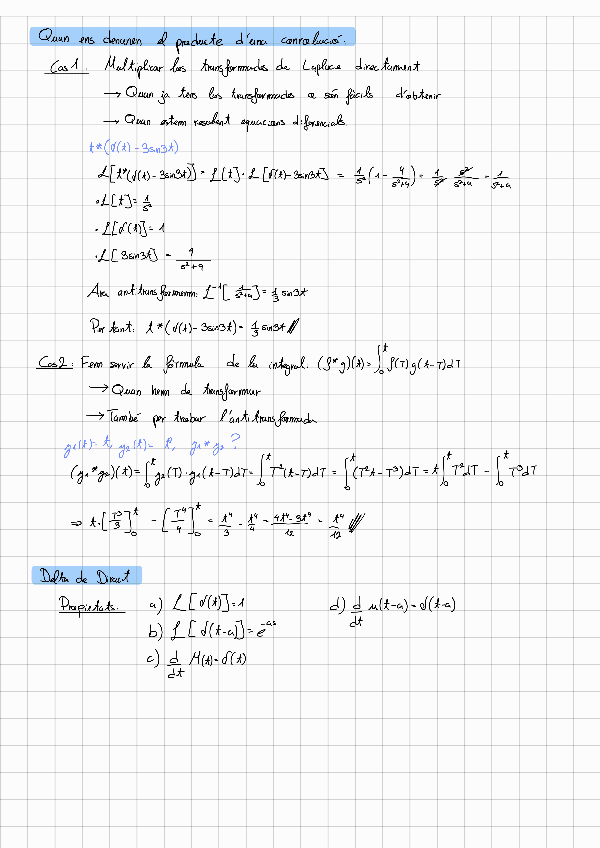 Quan ens demanen el producte d'una convolució.
Cas 1: Multiplicar les transformades de Laplace directament
→ Quan ja tens les transformades o són fàcils d'obtenir
→ Quan estem resolent equacions diferencials
t*(δ(t)-3sin3t)
L[t*(δ(t)-3sin3t)] = L[t]·L[δ(t)-3sin3t] = 1/s² (1 - 9/(s²+9)) = 1/s² · s²/(s²+9) = 1/(s²+9)
·L[t] = 1/s²
·L[δ(t)] = 1
·L[3sin3t] = 9/(s²+9)
Ara antitransformem: L⁻¹[1/(s²+9)] = 1/3 sin3t
Per tant: t*(δ(t)-3sin3t) = 1/3 sin3t
Cas 2: Fem servir la fórmula de la integral: (f*g)(t) = ∫₀ᵗ f(T)g(t-T)dT
→ Quan hem de transformar
→ També per trobar l'antitransformada
y₁(t)=t, y₂(t)=t², y₁*y₂?
(y₁*y₂)(t) = ∫₀ᵗ y₂(T)·y₁(t-T)dT = ∫₀ᵗ T²(t-T)dT = ∫₀ᵗ (T²t-T³)dT = t∫₀ᵗ T²dT - ∫₀ᵗ T³dT
⇒ t·[T³/3]₀ᵗ - [T⁴/4]₀ᵗ = t⁴/3 - t⁴/4 = (4t⁴-3t⁴)/12 = t⁴/12
Delta de Diract
Propietats: a) L[δ(t)]=1 d) d/dt u(t-a)=δ(t-a)
b) L[δ(t-a)]=e^-as
c) d/dt H(t)=δ(t)